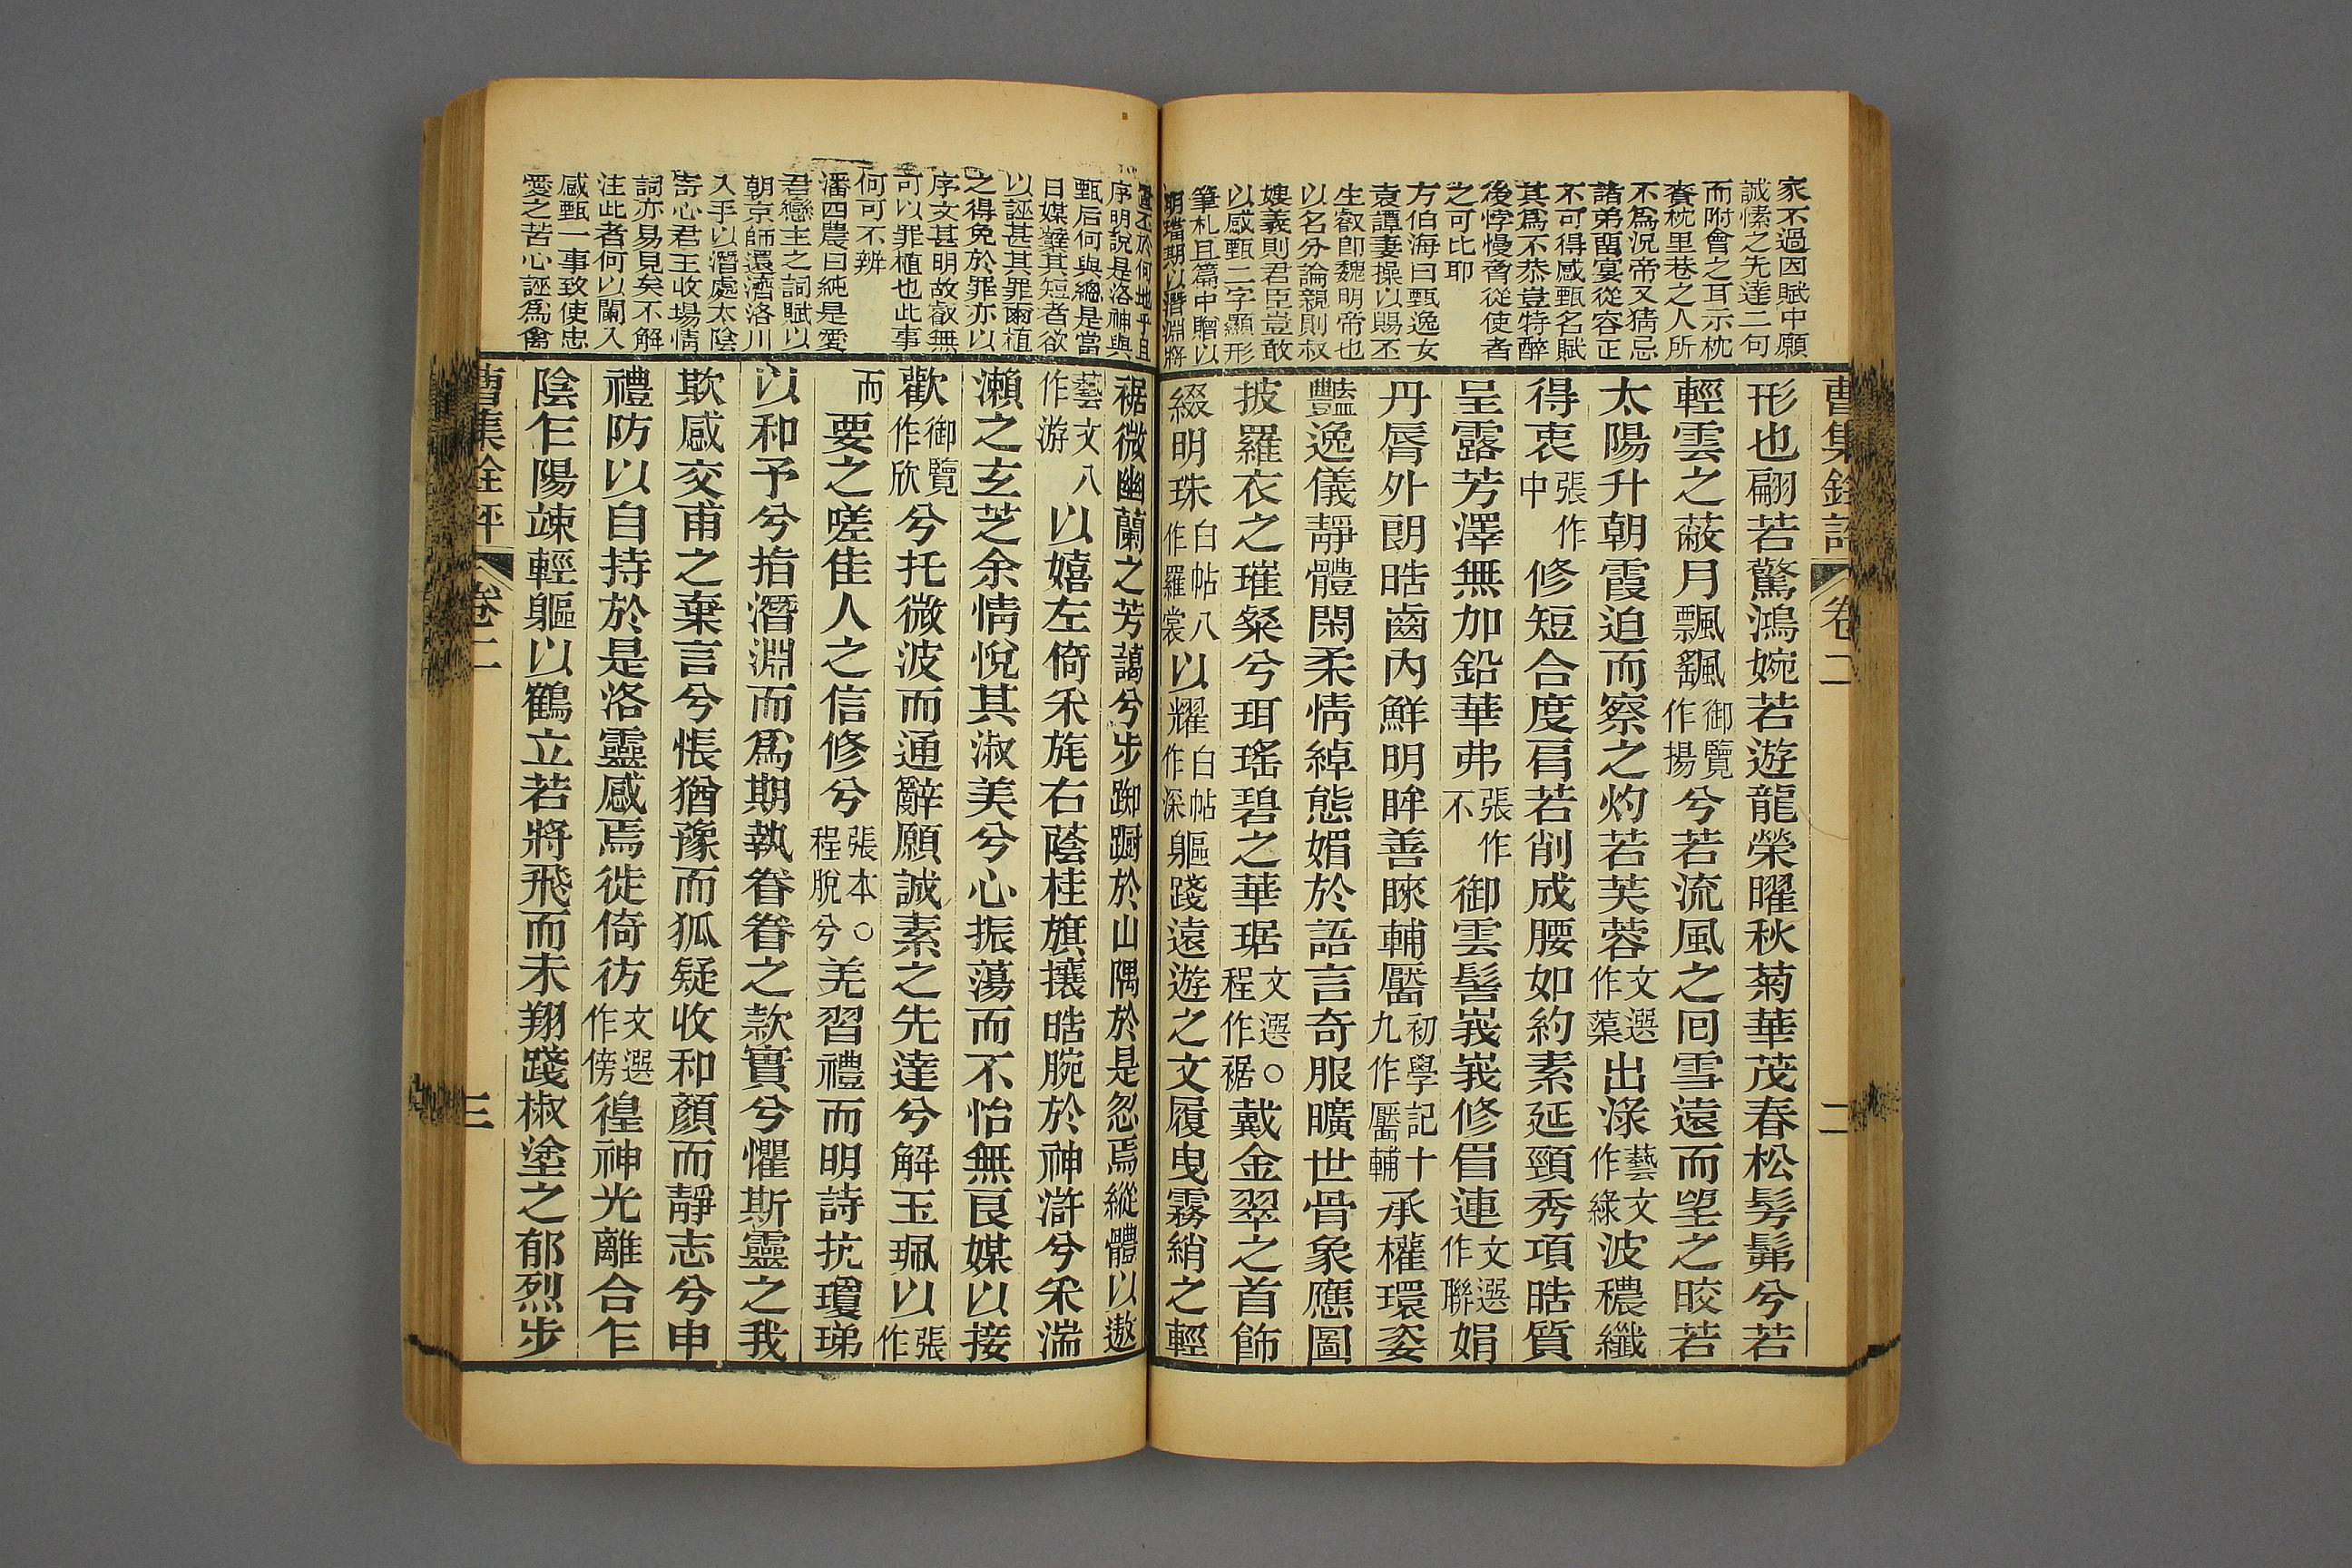 家不過因賦中願
誠愫之先達二句
而附會之耳示枕
賚枕里巷之人所
不爲況帝又猜忌
諸弟畱宴從容正
不可得感甄名賦
其爲不恭豈特醉
後悖慢脅從使者
之可比耶
方伯海曰甄逸女
袁譚妻操以賜丕
生叡卽魏明帝也
以名分論親則叔
嫂義則君臣豈敢
以感甄二字顯形
筆札且篇中贈以
明璫期以潛淵將
曹集銓評 卷二 二
形也翩若驚鴻婉若遊龍榮曜秋菊華茂春松髣髴兮若
輕雲之蔽月飄颻御覽作揚兮若流風之回雪遠而望之皎若
太陽升朝霞迫而察之灼若芙蓉文選作蕖出淥藝文作綠波穠纖
得衷張作中修短合度肩若削成腰如約素延頸秀項皓質
呈露芳澤無加鉛華弗張作不御雲髻峩峩修眉連文選作聯娟
丹脣外朗皓齒內鮮明眸善睞輔靨初學記十九作靨輔承權瓌姿
豔逸儀靜體閑柔情綽態媚於語言奇服曠世骨象應圖
披羅衣之璀粲兮珥瑤碧之華琚文選○程作裾戴金翠之首飾
綴明珠白帖八作羅裳以耀白帖作深軀踐遠遊之文履曳霧綃之輕
置丕於何地乎且
序明說是洛神與
甄后何與總是當
日媒糵其短者欲
以誣甚其罪爾植
之得免於罪亦以
序文甚明故叡無
可以罪植也此事
何可不辨
潘四農曰純是愛
君戀主之詞賦以
朝京師還濟洛川
入手以潛處太陰
寄心君王收場情
詞亦易見矣不解
注此者何以闌入
感甄一事致使忠
愛之苦心誣爲禽
裾微幽蘭之芳藹兮步踟躕於山隅於是忽焉縱體以遨
藝文八作游以嬉左倚采旄右蔭桂旗攘皓腕於神滸兮采湍
瀨之玄芝余情悅其淑美兮心振蕩而不怡無良媒以接
歡御覽作欣兮托微波而通辭願誠素之先達兮解玉珮以張作
而要之嗟佳人之信修兮張本○程脫兮羌習禮而明詩抗瓊珶
以和予兮指潛淵而爲期執眷眷之款實兮懼斯靈之我
欺感交甫之棄言兮悵猶豫而狐疑收和顏而靜志兮申
禮防以自持於是洛靈感焉徙倚彷文選作傍徨神光離合乍
陰乍陽竦輕軀以鶴立若將飛而未翔踐椒塗之郁烈步
曹集銓評 卷二 三